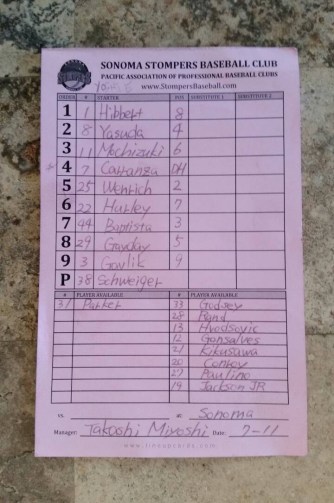 SONOMA STOMPERS BASEBALL CLUB
PACIFIC ASSOCIATION OF PROFESSIONAL BASEBALL CLUBS
www.StompersBaseball.com
ORDER # STARTER POS SUBSTITUTE 1 SUBSTITUTE 2
1 1 Hibbert 8
2 8 Yasuda 4
3 11 Mochizuki 6
4 7 Carranza DH
5 25 Wenrich 2
6 22 Hurley 7
7 44 Baptista 3
8 29 Gayday 5
9 3 Gavlik 9
P 38 Schweiger
# PLAYER AVAILABLE # PLAYER AVAILABLE
37 Parker 33 Godsey
28 Rand
13 Hvodsovic
12 Gonsalves
21 Kikusawa
20 Conroy
27 Paulino
19 Jackson JR
vs. at: Sonoma
Manager: Takashi Miyoshi Date: 7-11